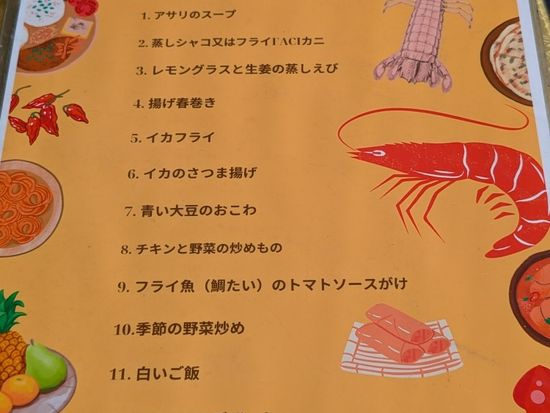 1. アサリのスープ
2. 蒸しシャコ又はフライFACIカニ
3. レモングラスと生姜の蒸しえび
4. 揚げ春巻き
5. イカフライ
6. イカのさつま揚げ
7. 青い大豆のおこわ
8. チキンと野菜の炒めもの
9. フライ魚（鯛たい）のトマトソースがけ
10.季節の野菜炒め
11. 白いご飯